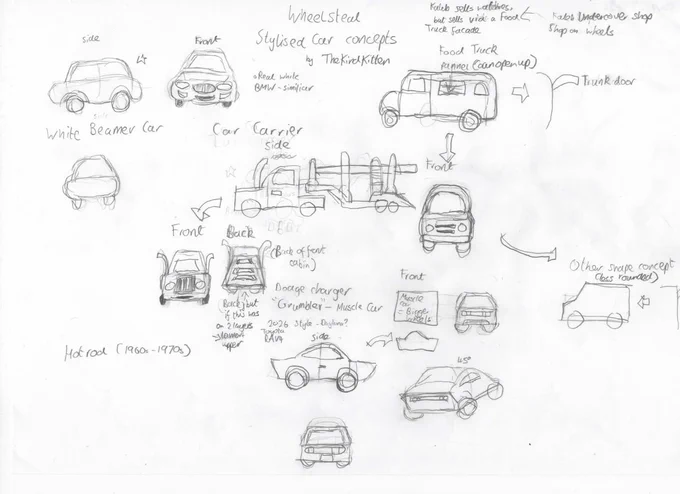 Wheelsteal
Stylised Car concepts
by TheKindKitten
Kaleb sells
but sells via a Food
Truck Facade
Undercover shop
Shop on wheels
side
Front
Real white
BMW-similar
side
White Beamer Car
Food Truck
pannel (can open up)
Trunk door
Car Carrier
side
Front
Front
Back
(Back of front
cabin)
Back, but
if this was
on 2 layers
upper
Dodge charger
"Grumbler" - Muscle Car
2026 Style - Daytona?
Toyota
RAV4
side
Front
Muscle
car
= Bigger
wheels
45°
Other shape concept
(less rounded)
Hotrod (1960s-1970s)